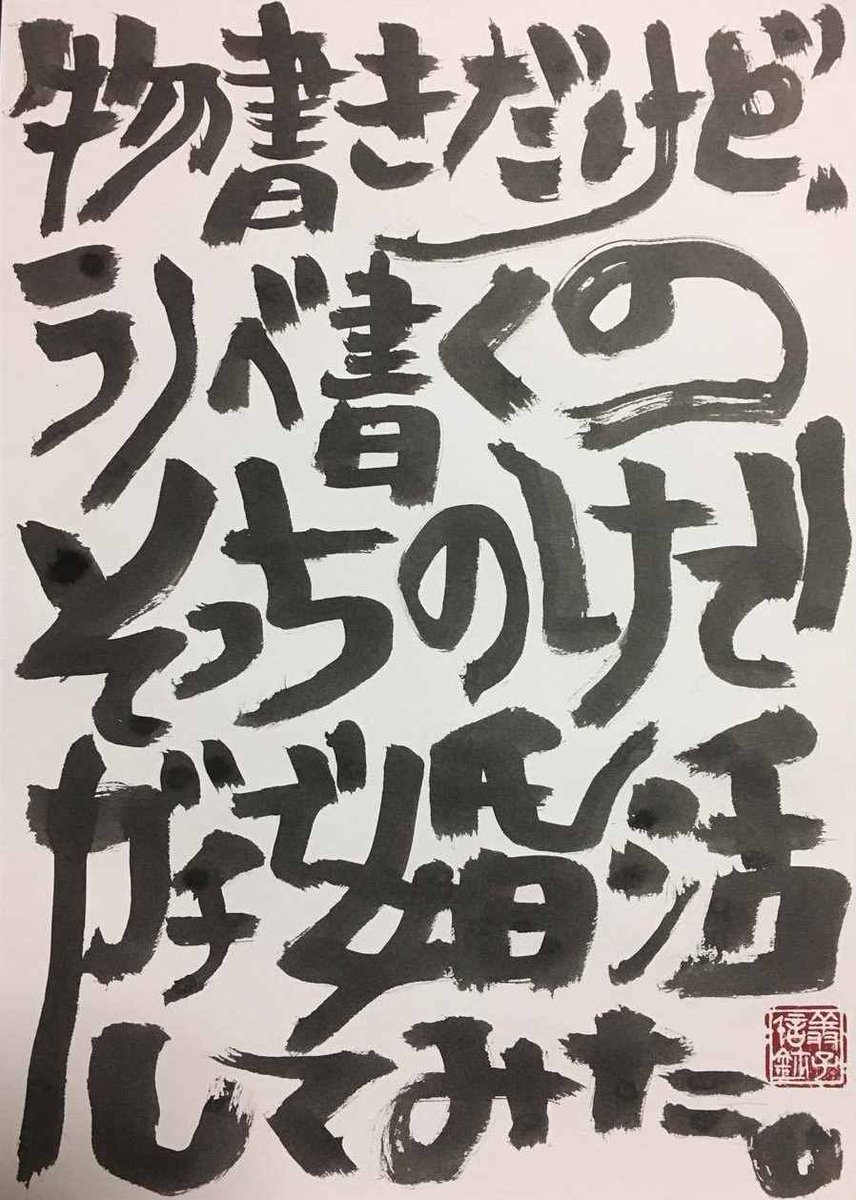 物書きだけど、
ラノベ書くの
そっちのけで
ガチで婚活
してみた。